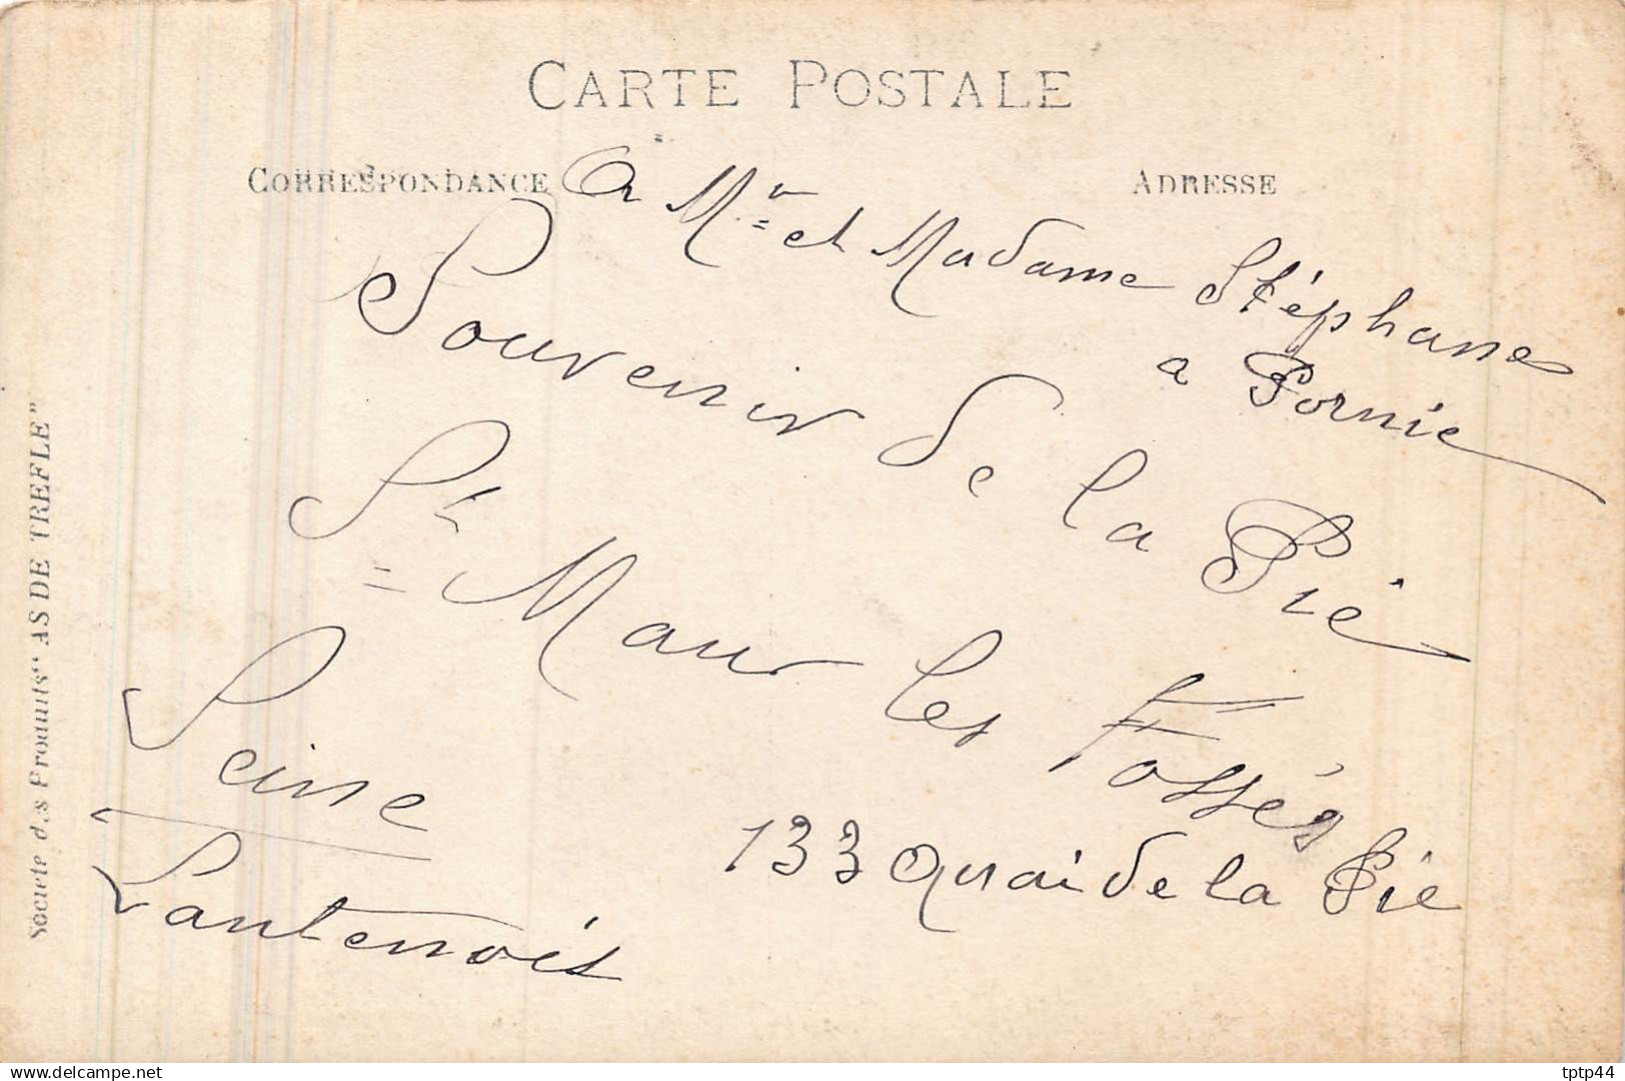 CARTE POSTALE
CORRESPONDANCE
ADRESSE
A Mr et Madame Stéphane
a Pornic
Souvenir de la Pie
St Maur les Fossés
Seine
133 quai de la Pie
Lantenois
Société des Produits "AS DE TREFLE"
delcampe.net
tptp44